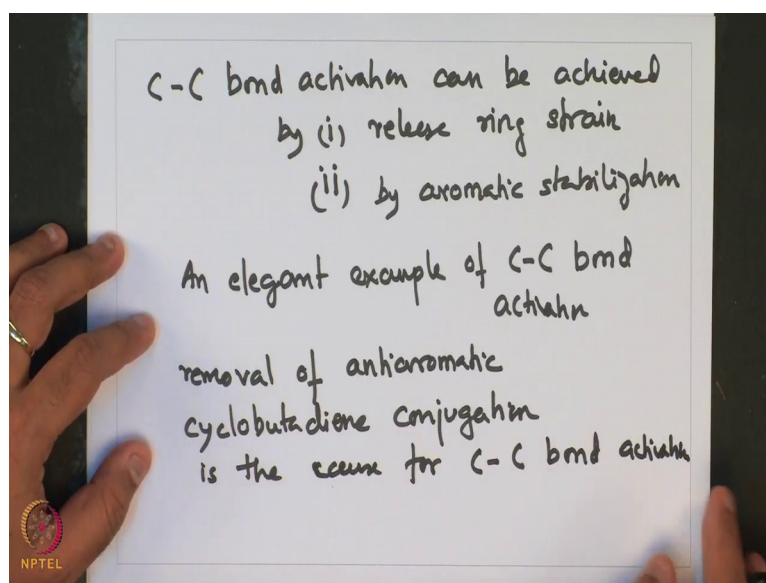 C-C bond activation can be achieved
by (i) release ring strain
(ii) by aromatic stabilization
An elegant example of C-C bond
activation
removal of antiaromatic
cyclobutadiene conjugation
is the cause for C-C bond activation
NPTEL